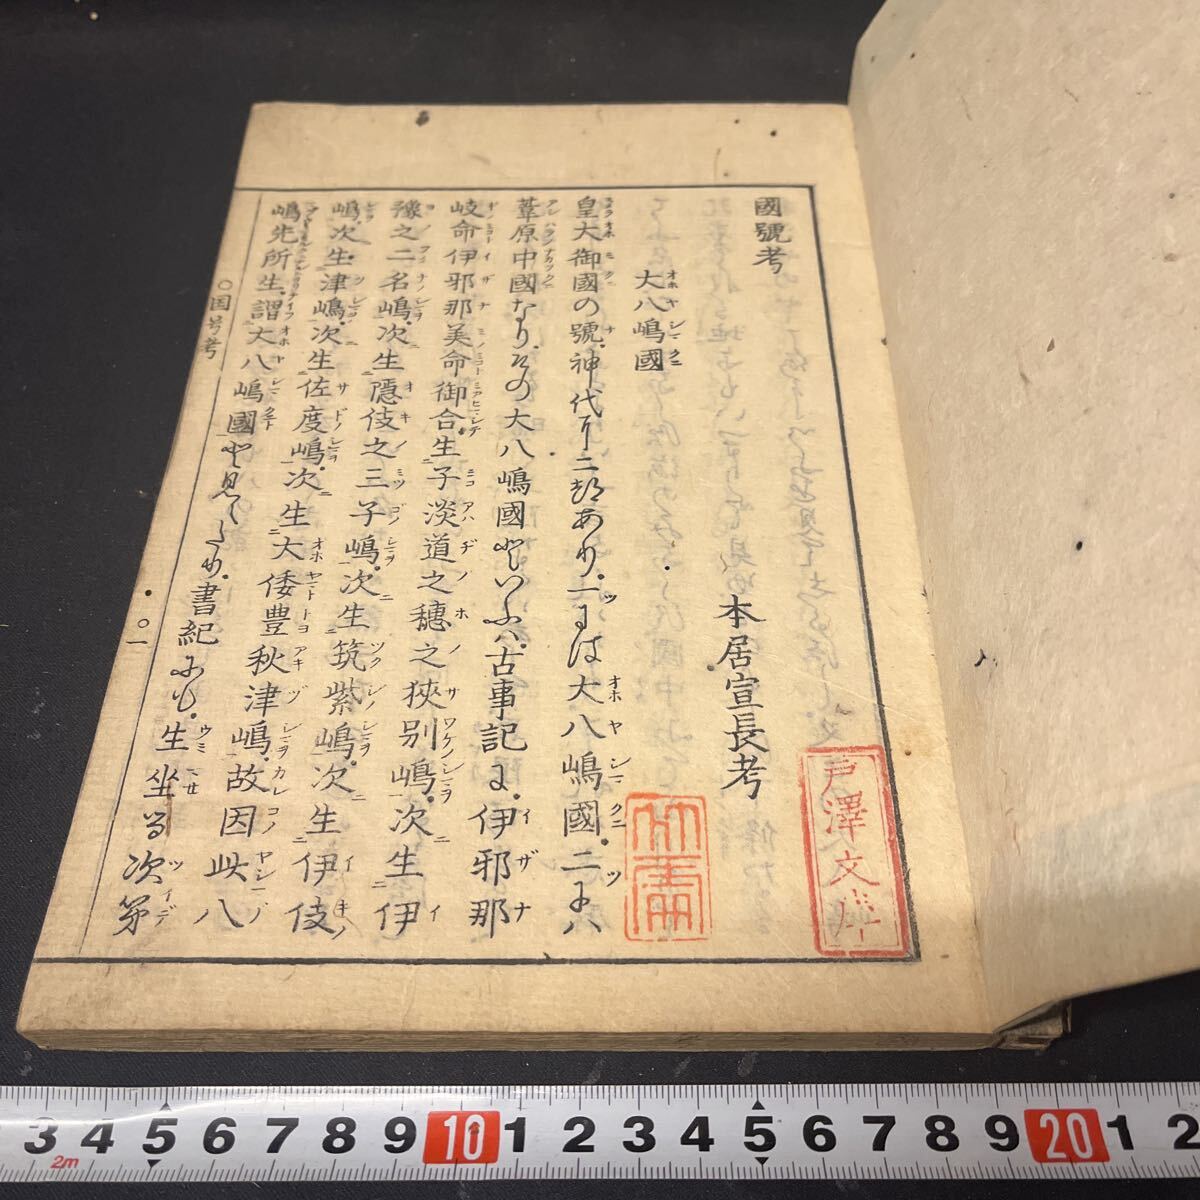 國號考
本居宣長考
大八嶋國
皇大御國の號神代に二つあり一つは大八嶋國二には
葦原中國なりその大八嶋國といふは古事記に伊邪那
岐命伊邪那美命御合生子淡道之穗之狹別嶋次生伊
豫之二名嶋次生隱伎之三子嶋次生筑紫嶋次生伊伎
嶋次生津嶋次生佐度嶋次生大倭豊秋津嶋故因此八
嶋先所生謂大八嶋國と見えたり書紀にも生坐る次第
○国号考
○一
戸澤文庫
3 4 5 6 7 8 9 10 1 2 3 4 5 6 7 8 9 20 1 2
2m